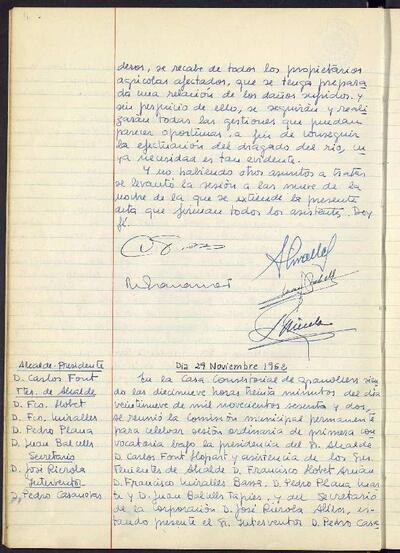 deros, se recabe de todos los propietarios
agrícolas afectados, que se tenga prepara
da una relación de los daños sufridos. y
sin perjuicio de ello, se seguirán y reali
zarán todas las gestiones que puedan
parecer oportunas a fin de conseguir
la efectuación del dragado del río, cu
ya necesidad es tan evidente.
Y no habiendo otros asuntos a tratar
se levantó la sesión a las nueve de la
noche de la que se extiende la presente
acta que firman todos los asistentes. Doy
fe.
Día 29 Noviembre 1962
Alcalde-Presidente
D. Carlos Font
Ttes. de Alcalde
D. Fco. Llobet
D. Fco. Miralles
D. Pedro Plana
D. Juan Balcells
Secretario
D. José Rierola
Interventor
D. Pedro Casanovas
En la Casa Consistorial de Granollers sien
do las diecinueve horas treinta minutos del día
veintinueve de mil novecientos sesenta y dos,
se reunió la Comisión municipal permanente
para celebrar sesión ordinaria de primera con
vocatoria bajo la presidencia del Sr. Alcalde
D. Carlos Font Llopart y asistencia de los Sres.
Tenientes de Alcalde D. Francisco Llobet Arnán
D. Francisco Miralles Bassa. D. Pedro Plana
y D. Juan Balcells Tapies, y del Secretario
de la Corporación D. José Rierola Alibés, es-
tando presente el Sr. Interventor D. Pedro Casa